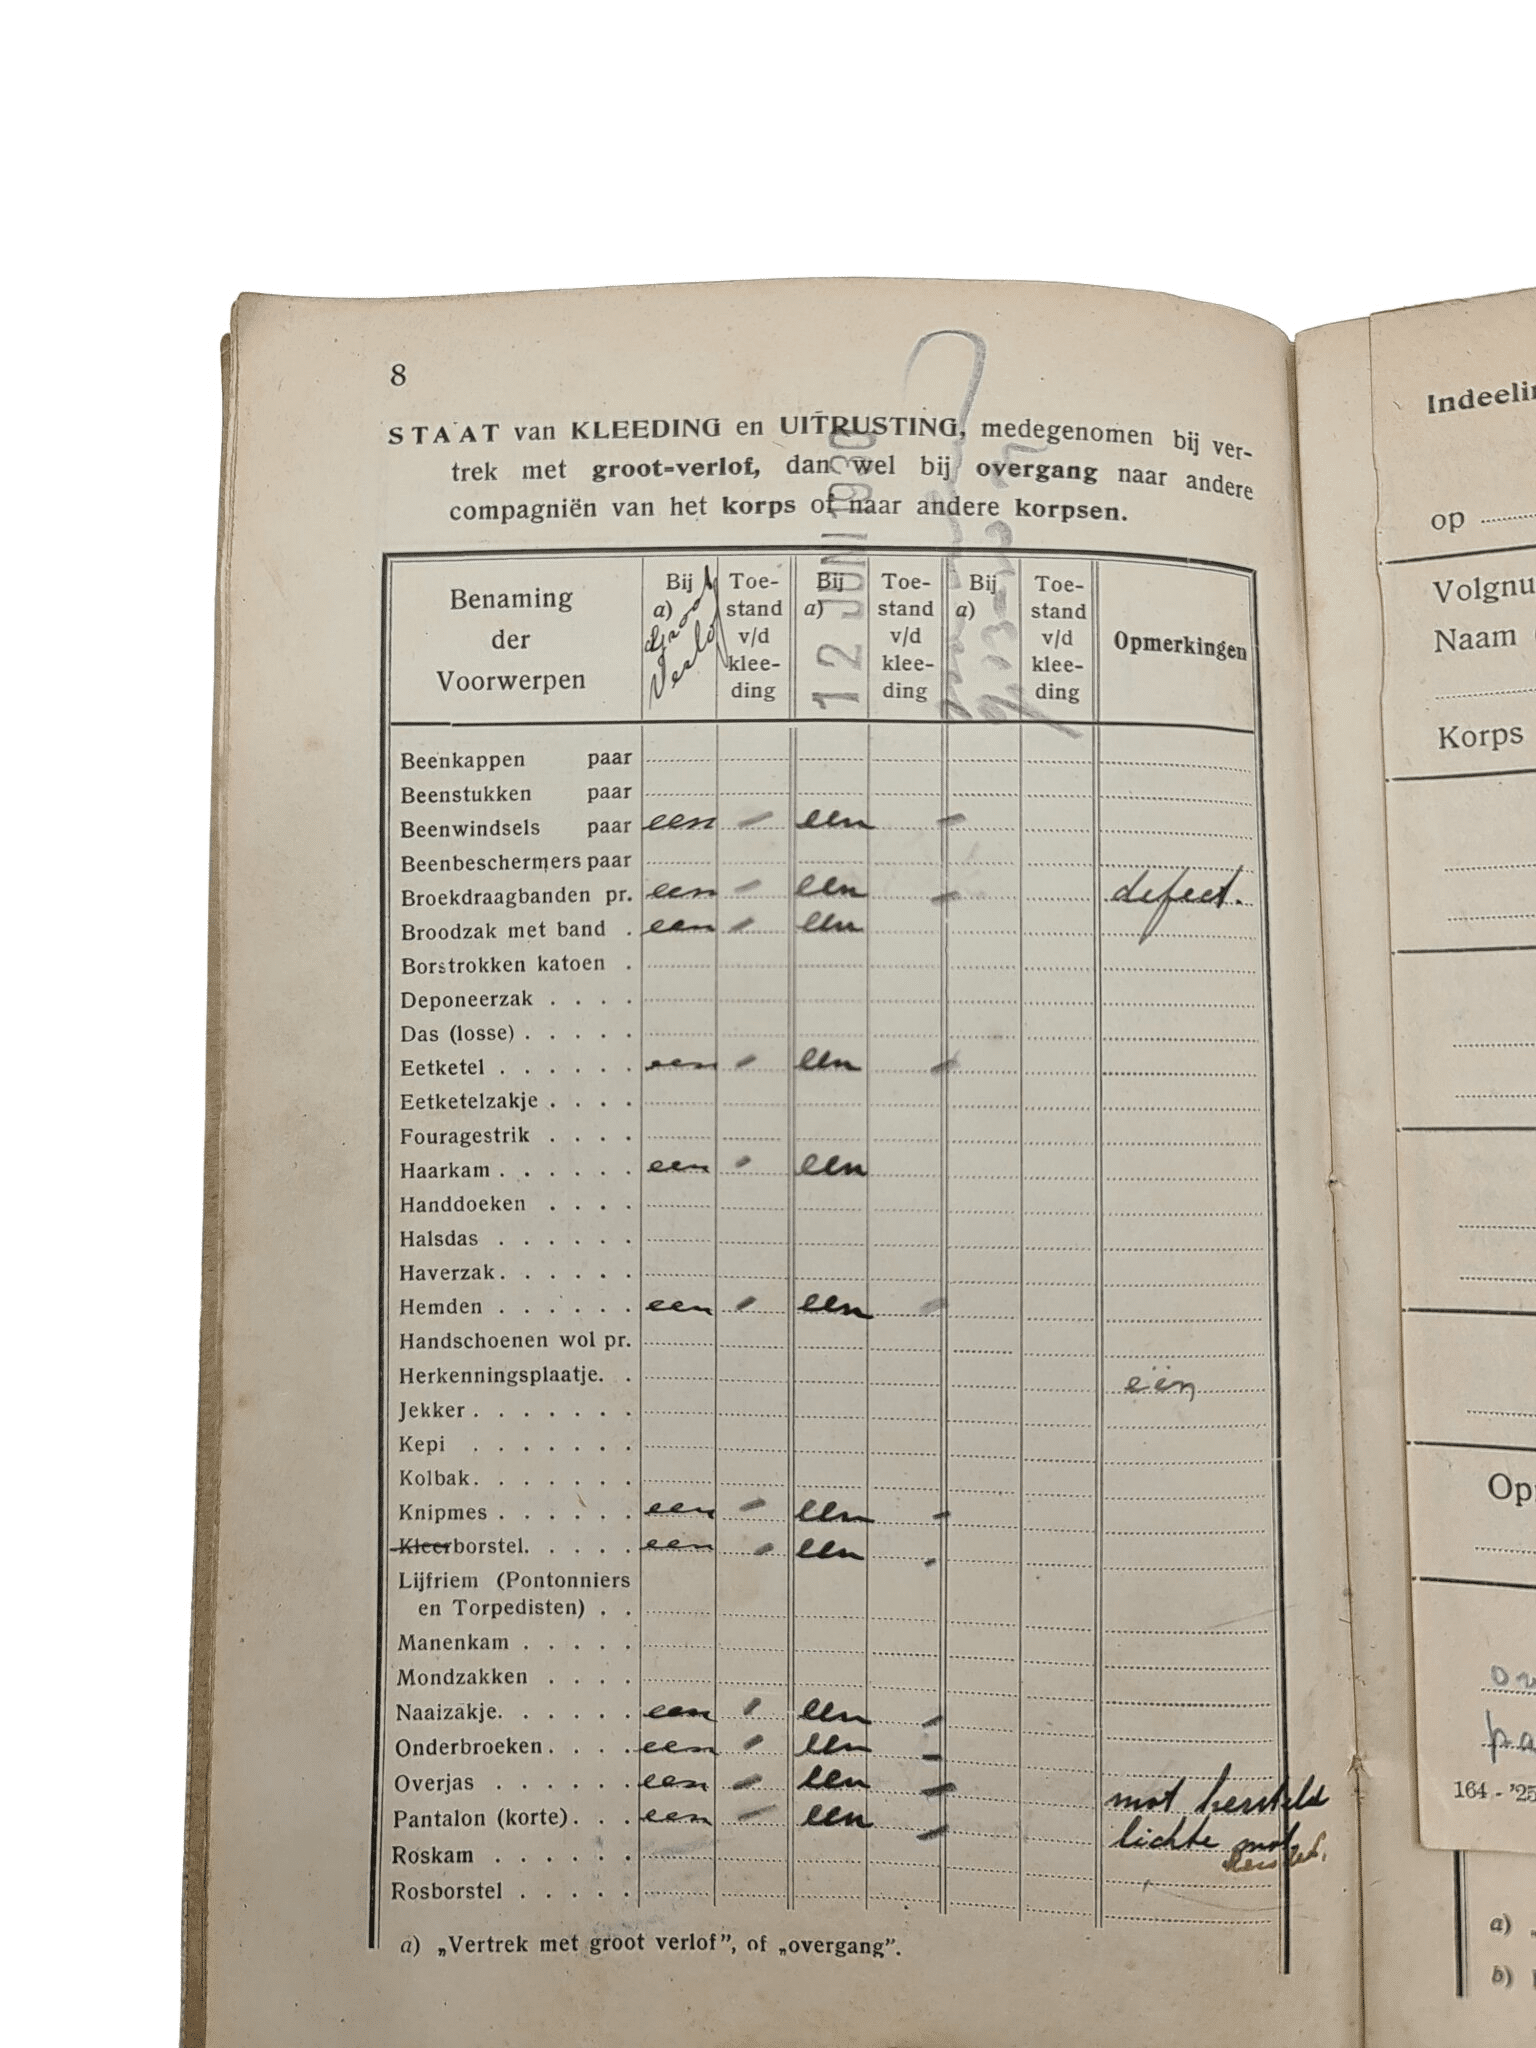 8
STAAT van KLEEDING en UITRUSTING, medegenomen bij ver-
trek met groot=verlof, dan wel bij overgang naar andere
compagniën van het korps of naar andere korpsen.
12 JUNI 1930
Benaming der Voorwerpen | Bij a) Groot Verlof | Toe-stand v/d klee-ding | Bij a) | Toe-stand v/d klee-ding | Bij a) | Toe-stand v/d klee-ding | Opmerkingen
Beenkappen paar
Beenstukken paar
Beenwindsels paar een - een -
Beenbeschermers paar
Broekdraagbanden pr. een - een - defect.
Broodzak met band . een - een
Borstrokken katoen .
Deponeerzak . . . .
Das (losse) . . . . .
Eetketel . . . . . . een - een -
Eetketelzakje . . . .
Fouragestrik . . . .
Haarkam . . . . . . een - een
Handdoeken . . . .
Halsdas . . . . . .
Haverzak . . . . . .
Hemden . . . . . . een - een -
Handschoenen wol pr.
Herkenningsplaatje. . een
Jekker . . . . . . .
Kepi . . . . . . .
Kolbak . . . . . . .
Knipmes . . . . . . een - een -
Kleerborstel. . . . . een - een -
Lijfriem (Pontonniers
en Torpedisten) . .
Manenkam . . . . .
Mondzakken . . . .
Naaizakje. . . . . . een - een -
Onderbroeken. . . . een - een -
Overjas . . . . . . een - een - mot hersteld
Pantalon (korte). . . een - een - lichte mot
Roskam . . . . . .
Rosborstel . . . . .
a) „Vertrek met groot verlof”, of „overgang”.
Indeelin
op
Volgnu
Naam
Korps
Op
164 - '25
a)
b)